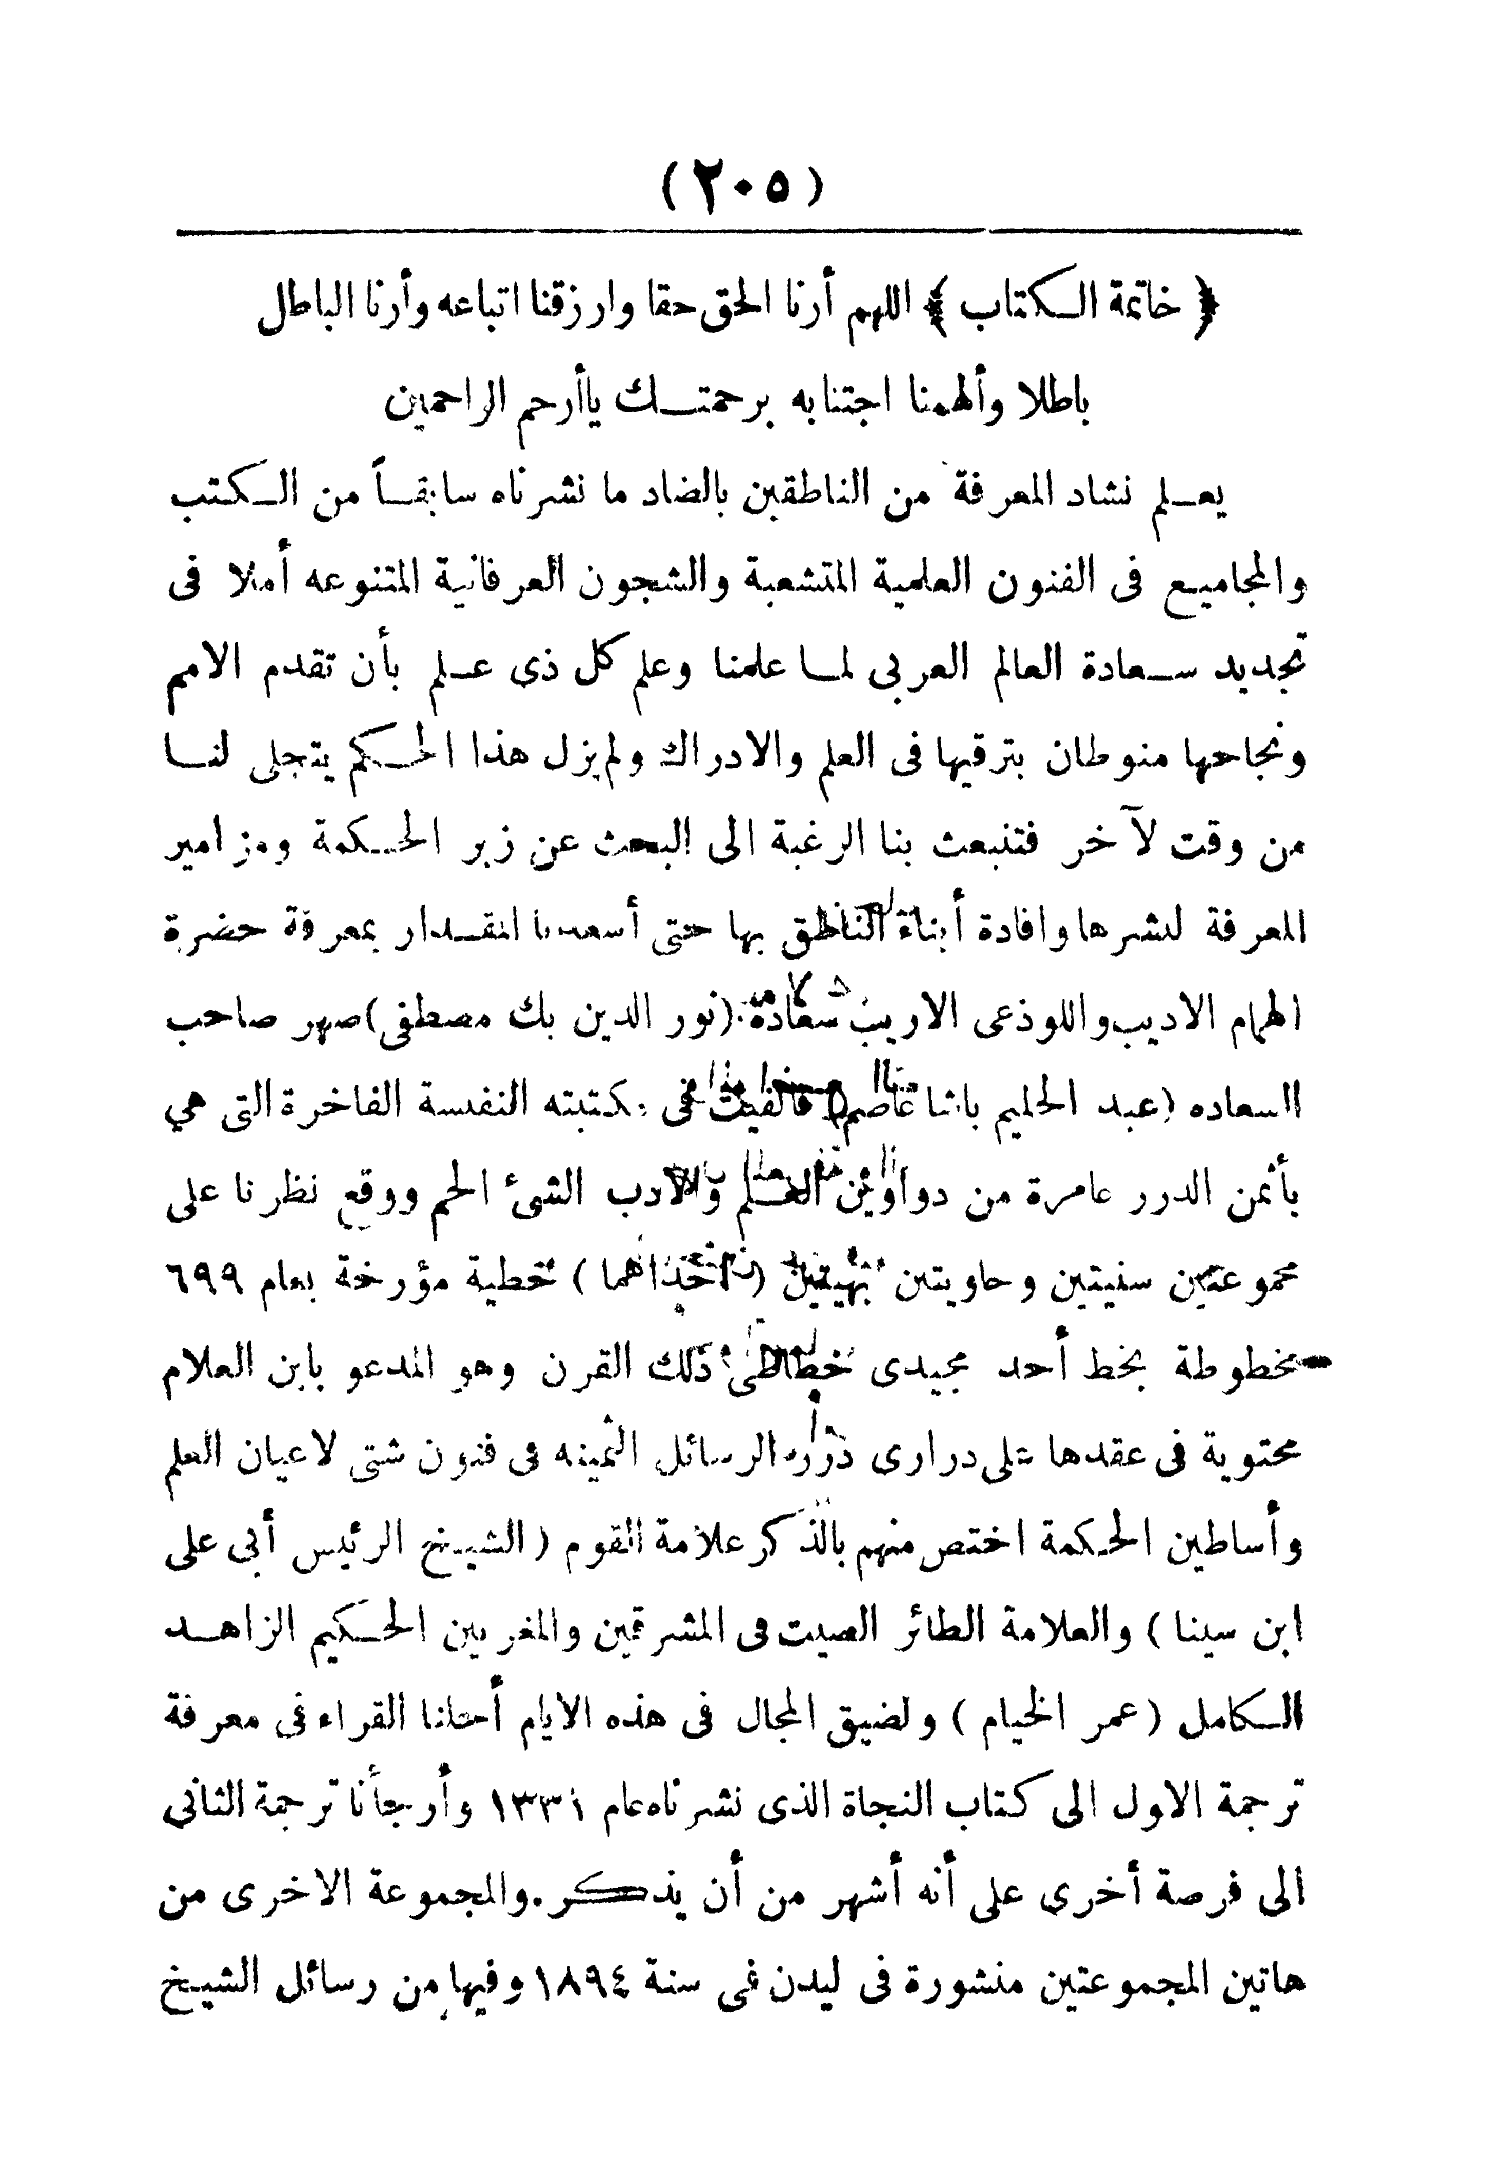 (٢٠٥)
﴿ خاتمة الكتاب ﴾ اللهم أرنا الحق حقا وارزقنا اتباعه وأرنا الباطل
باطلا وألهمنا اجتنابه برحمتك ياأرحم الراحمين
يعلم نشاد المعرفة من الناطقين بالضاد ما نشرناه سابقاً من الكتب
والمجاميع فى الفنون العلمية المتشعبة والشجون العرفانية المتنوعه أملا فى
تجديد سعادة العالم العربى لما علمنا وعلم كل ذى علم بأن تقدم الامم
ونجاحها منوطان بترقيها فى العلم والادراك ولم يزل هذا الحكم يتجلى لنا
من وقت لآخر فتنبعث بنا الرغبة الى البحث عن زبر الحكمة ومزامير
المعرفة لنشرها وافادة أبناء الناطق بها حتى أسعدنا المقدار بمعرفة حضرة
الهمام الاديب واللوذعى الاريب سعادة (نور الدين بك مصطفى) صهر صاحب
السعاده (عبد الحليم باشا عاصم) فالفيت فى مكتبته النفيسة الفاخرة التى هي
بأثمن الدرر عامرة من دواوين العلم والادب الشئ الجم ووقع نظرنا على
مجموعتين سنيتين وحاويتين بهيتين (احداهما) خطية مؤرخة بعام ٦٩٩
مخطوطة بخط أحد مجيدى خطاطى ذلك القرن وهو المدعو بابن العلام
محتوية فى عقدها على درارى درر الرسائل الثمينه فى فنون شتى لاعيان العلم
وأساطين الحكمة اختص منهم بالذكر علامة القوم (الشيخ الرئيس أبى على
ابن سينا) والعلامة الطائر الصيت فى المشرقين والمغربين الحكيم الزاهد
الكامل (عمر الخيام) ولضيق المجال فى هذه الايام أحلنا القراء فى معرفة
ترجمة الاول الى كتاب النجاة الذى نشرناه عام ١٣٣١ وأرجأنا ترجمة الثانى
الى فرصة أخرى على أنه أشهر من أن يذكر. والمجموعة الاخرى من
هاتين المجموعتين منشورة فى ليدن فى سنة ١٨٩٤ وفيها من رسائل الشيخ